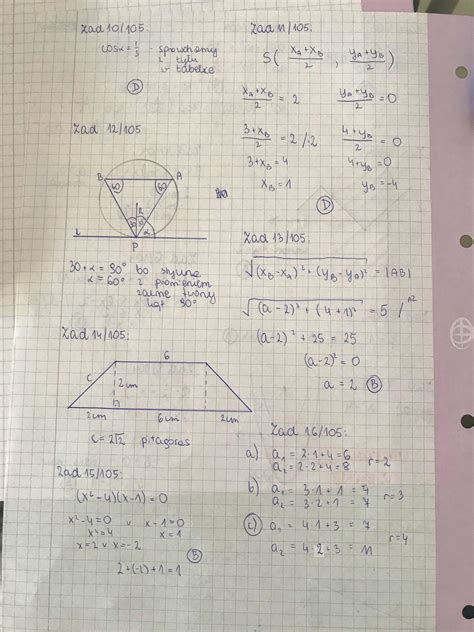 Zad 10/105:
cosα = 1/3 - sprawdzamy
z tyłu
w tabelce
D
Zad 11/105:
S( (x_A+x_B)/2 , (y_A+y_B)/2 )
(x_A+x_B)/2 = 2
(y_A+y_B)/2 = 0
(3+x_B)/2 = 2 /·2
(4+y_B)/2 = 0
3+x_B = 4
4+y_B = 0
x_B = 1
y_B = -4
D
Zad 12/105
B
A
60
60
R
30
α
l
P
30+α = 90° bo styczna
α = 60° z promieniem
zawsze tworzy
kąt 90°
Zad 13/105:
√((x_B-x_A)²+(y_B-y_A)²) = |AB|
√((a-2)²+(4+1)²) = 5 /^2
(a-2)²+25 = 25
(a-2)² = 0
a = 2
B
Zad 14/105:
6
c
2cm
2cm
6cm
2cm
c = 2√2 pitagoras
Zad 15/105:
(x²-4)(x-1)=0
x²-4=0 v x-1=0
x²=4 x=1
x=2 v x=-2
B
2+(-2)+1=1
Zad 16/105:
a) a₁ = 2·1+4=6
a₂ = 2·2+4=8
r=2
b) a₁ = 3·1+1=4
a₂ = 3·2+1=7
r=3
c) a₁ = 4·1+3=7
a₂ = 4·2+3=11
r=4